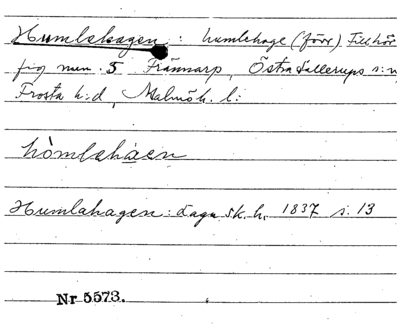 Humlehagen : humlehage (förr) Tillhör
fig num. 5 Frännarp, Östra Sallerups s:n
Frosta h:d, Malmöh. l:
hòmlehàen
Humlahagen: Laga sk. h. 1837 s. 13
Nr 5573.